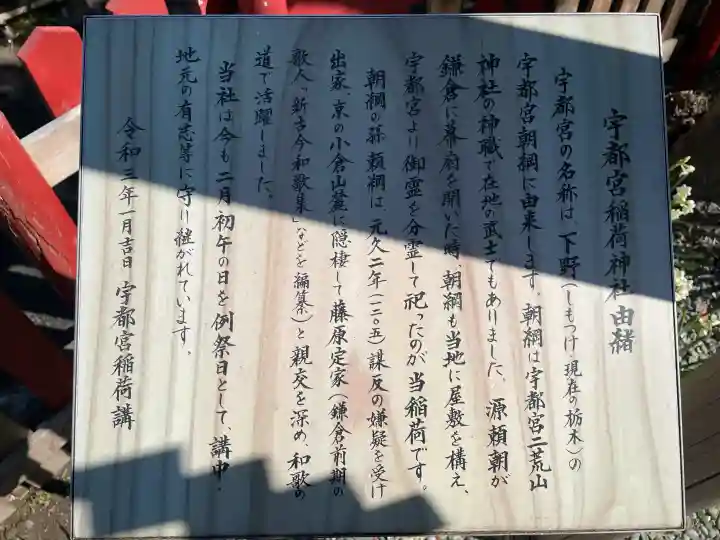 宇都宮稲荷神社由緒
宇都宮の名称は、下野(しもつけ・現在の栃木)の
宇都宮朝綱に由来します。朝綱は宇都宮二荒山
神社の神職で在地の武士でもありました。源頼朝が
鎌倉に幕府を開いた時、朝綱も当地に屋敷を構え、
宇都宮より御霊を分霊して祀ったのが当稲荷です。
朝綱の孫頼綱は、元久二年(一二〇五)謀反の嫌疑を受け
出家、京の小倉山麓に隠棲して藤原定家(鎌倉前期の
歌人「新古今和歌集」などを編纂)と親交を深め、和歌の
道で活躍しました。
当社は今も二月初午の日を例祭日として、講中・
地元の有志等に守り継がれています。
令和三年一月吉日 宇都宮稲荷講